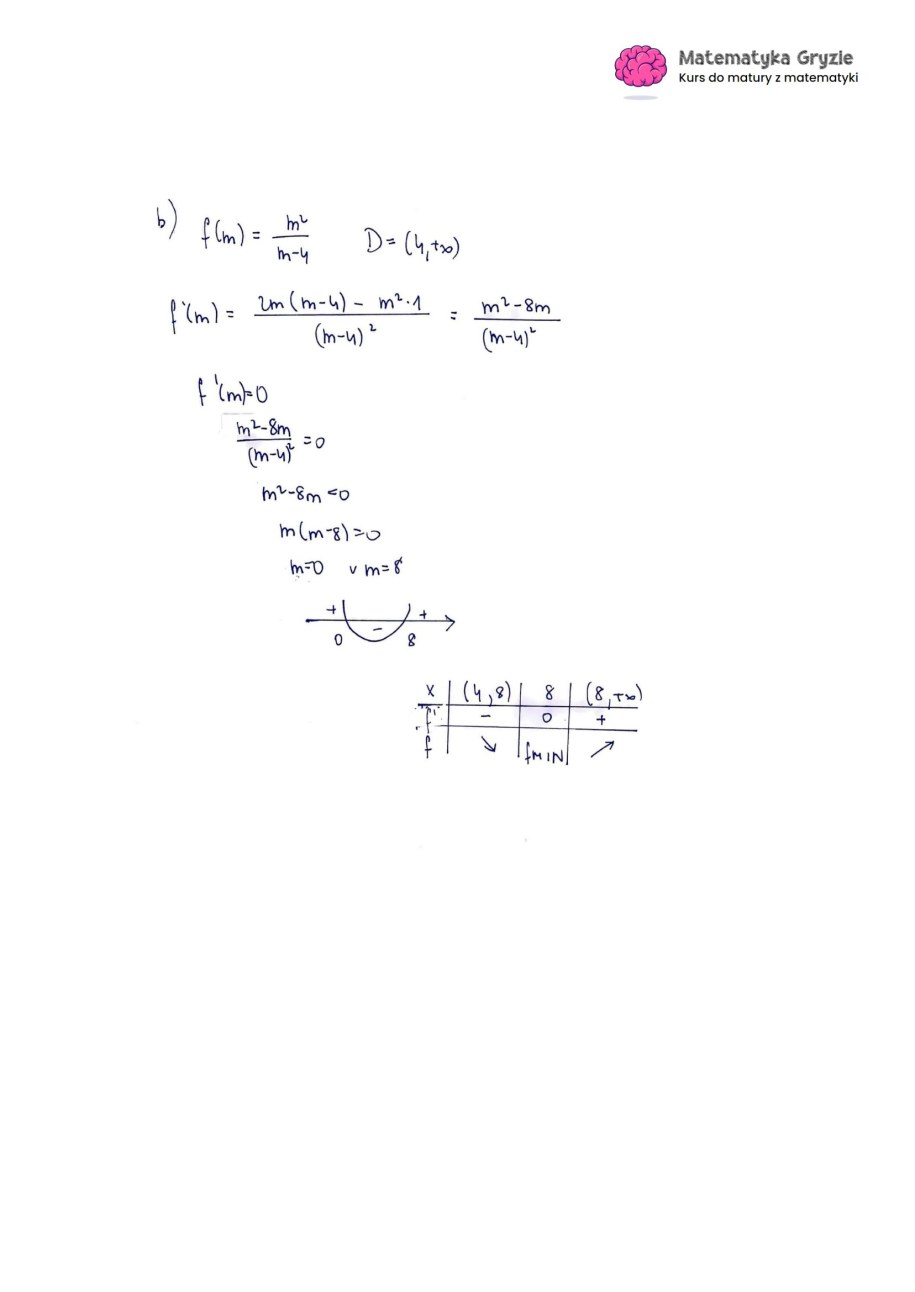 Matematyka Gryzie
Kurs do matury z matematyki
b) f(m) = m²/(m-4) D = (4,+∞)
f'(m) = (2m(m-4) - m²·1)/(m-4)² = (m²-8m)/(m-4)²
f'(m)=0
(m²-8m)/(m-4)² = 0
m²-8m=0
m(m-8)=0
m=0 ∨ m=8
+ - +
0 8
x | (4,8) | 8 | (8,+∞)
f' | - | 0 | +
f | ↘ | fMIN | ↗